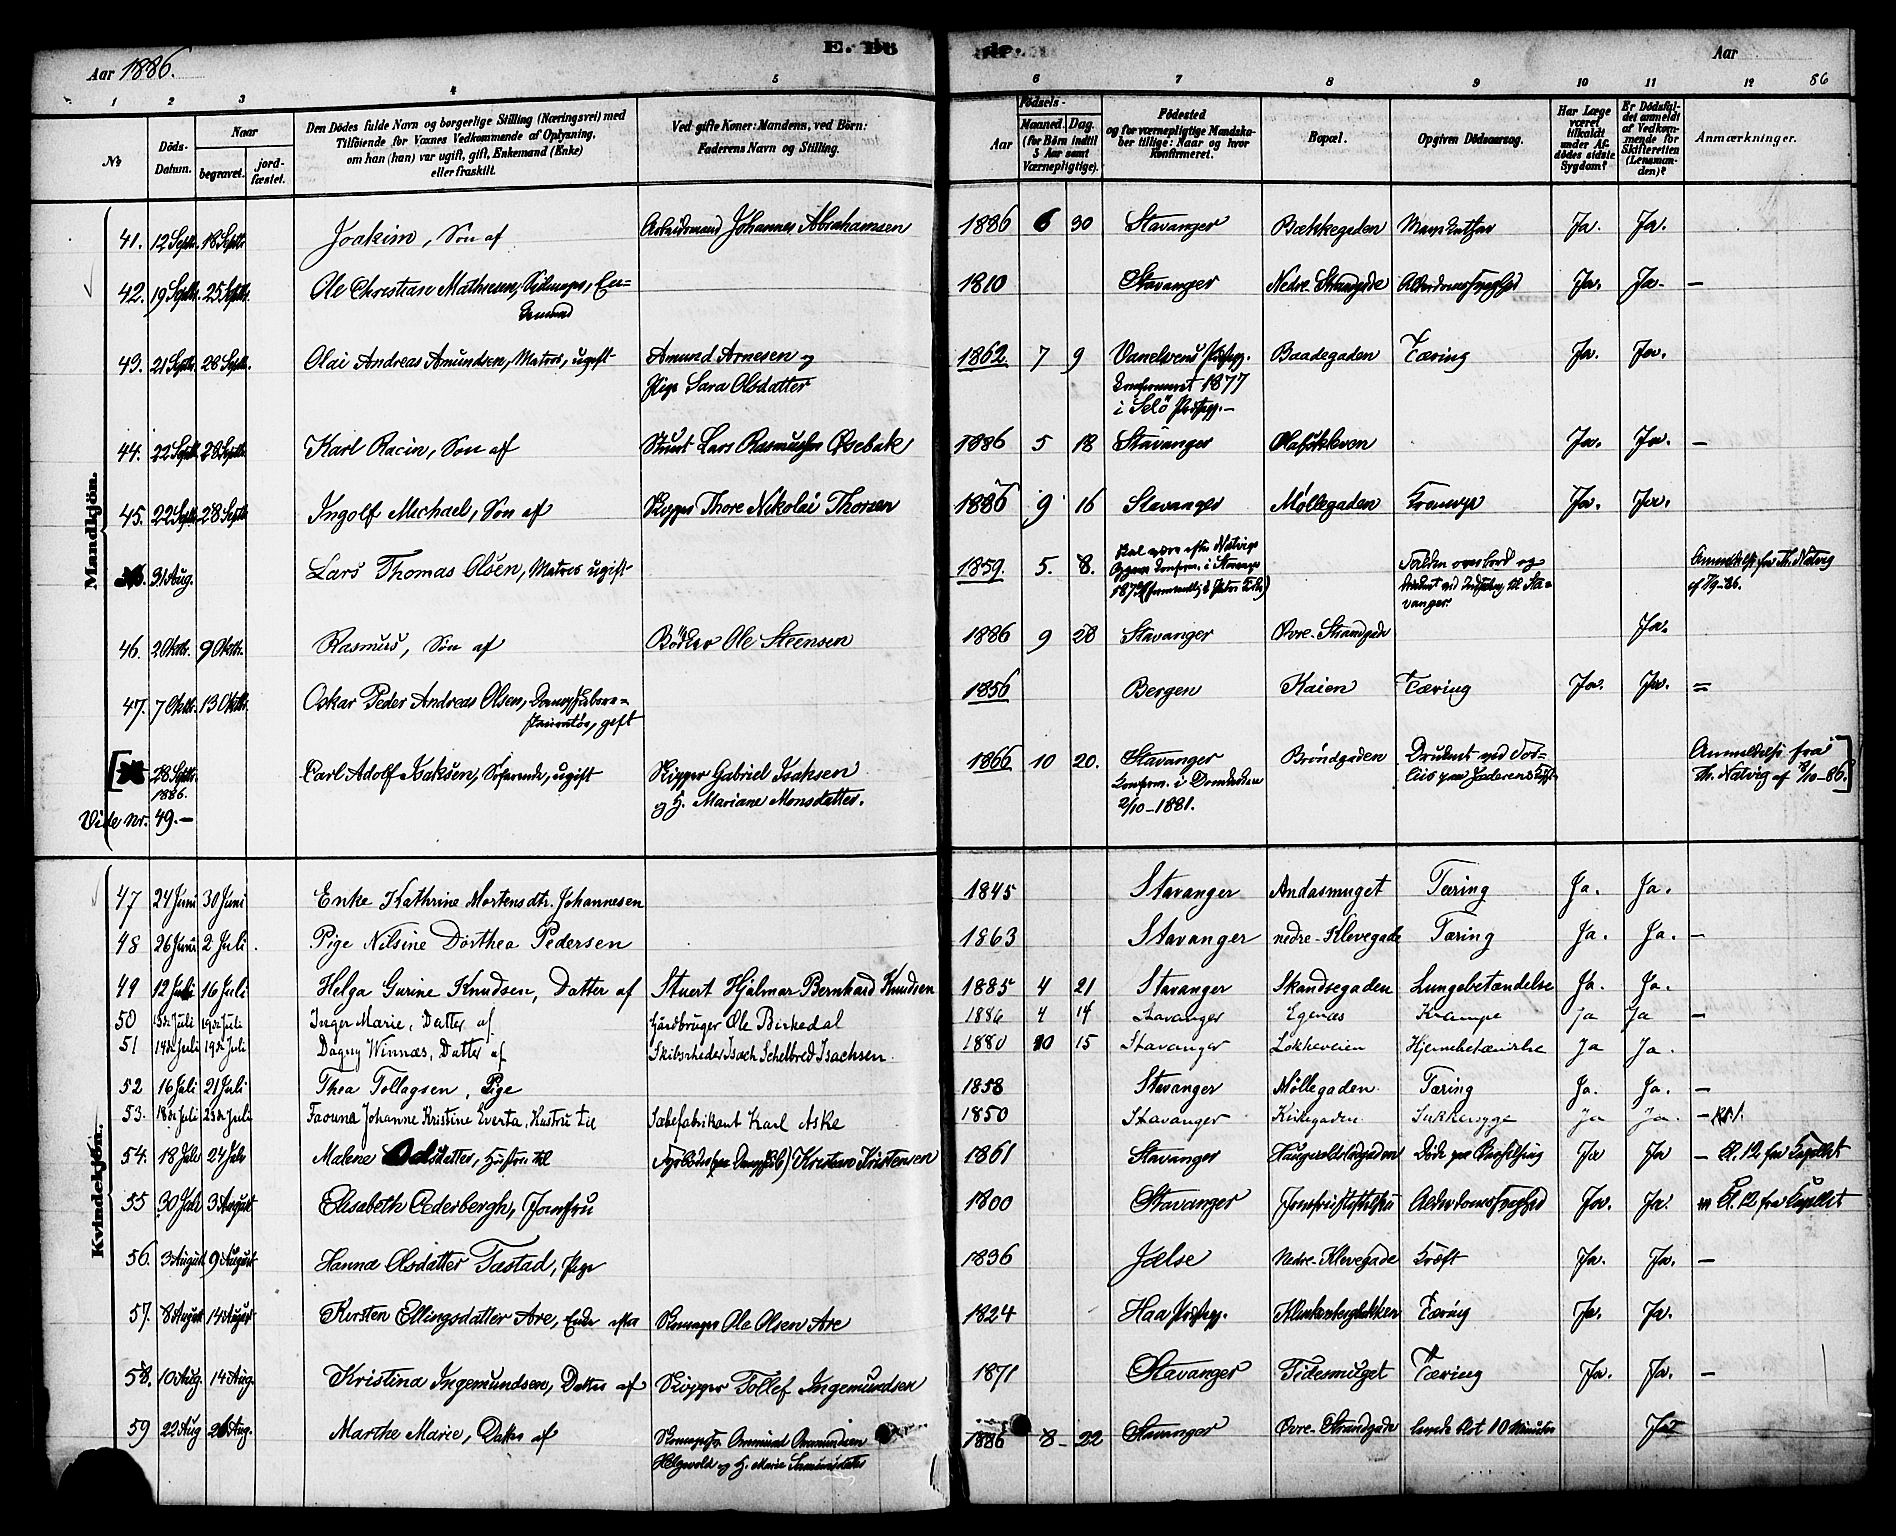 E. Dø de.
Aar 1886. Aar
1 2 3 4 5 6 7 8 9 10 11 12 86
No Döds-Datum. Naar begravet. jord-fæstet. Den Dödes fulde Navn og borgerlige Stilling (Næringsvei) med Tilföiende for Voxnes Vedkommende af Oplysning, om han (hun) var ugift, gift, Enkemand (Enke) eller fraskilt. Ved gifte Koner: Mandens, ved Børn: Faderens Navn og Stilling. Födsels- Aar Maaned. Dag. (for Børn indtil 5 Aar samt Værnepligtige). Födested og for værnepligtige Mandskaber tillige: Naar og hvor konfirmeret. Bopæl. Opgiven Dödsaarsag. Har Læge været tilkaldt under Afdödes sidste Sygdom? Er Dödsfaldet anmeldt af Vedkommende for Skifteretten (Lensmanden)? Anmærkninger.
Mandkjön.
41. 12 Septr. 18 Septr. Joakim, Søn af Arbeidsmand Johannes Abrahamsen 1886 6 30 Stavanger Bækkegaden Ja. Ja.
42. 19 Septr. 25 Septr. Ole Christian Mathesen, En- 1810 Stavanger Nedre-Strandgade Alderdomssvaghed Ja. Ja. —
kemand
43. 21 Septr. 28 Septr. Olai Andreas Amundsen, Matros, ugift Amund Arnesen og 1862 7 9 Vanelvens Præstegj. Baadegaden Tæring Ja. Ja.
Pige Sara Olsdatter Konfirmeret 1877
i Selö Præstegj. —
44. 22 Septr. 28 Septr. Karl Racin, Søn af Stuert Lars Rasmussen Østebak 1886 5 18 Stavanger Olafskleven Ja. Ja. —
45. 22 Septr. 28 Septr. Ingolf Michael, Søn af Skipper Thore Nikolai Thorsen 1886 9 16 Stavanger Møllegaden Krampe Ja. Ja.
31 Aug. Lars Thomas Olsen, Matros ugift 1859. 5. 8. Skal være efter Natvigs Falden overbord og Anmeldelse fra Th. Natvig
Opgave konfirm. i Stavanger druknet ved Indseiling til Sta- af 7/9-86.
vanger.
46. 2 Oktr. 9 Oktr. Rasmus, Søn af Bödker Ole Steensen 1886 9 28 Stavanger Øvre-Strandgade Ja.
47. 7 Oktr. 13 Oktr. Oskar Peder Andreas Olsen, 1856 Bergen Kaien Tæring Ja. Ja. =
gift
28 Septr. Carl Adolf Isaksen, Søfarende, ugift Skipper Gabriel Isaksen 1866 10 20. Stavanger Brøndgaden Druknet ved For- Anmeldelse fra
1886. og H. Mariane Monsdatter. Konfirm. i Domkirken lis paa Jæderens Th. Natvig af 8/10-86.
Vide Nr. 49.— 2/10-1881.
Kvindekjön.
47 24 Juni 30 Juni Enke Kathrine Mortensdtr. Johannesen 1845 Stavanger Andasmuget Tæring Ja. Ja.
48 26 Juni 2 Juli. Pige Nilsine Dorthea Pedersen 1863 Stavanger nedre-Klevegade Tæring Ja. Ja. —
49 12 Juli 16 Juli Helga Gurine Knudsen, Datter af Stuert Hjalmar Bernhard Knudsen 1885 4 21 Stavanger Skandsegaden Lungebetændelse Ja. Ja.
50 15de Juli 19de Juli Inger Marie, Datter af Gårdbruger Ole Birkedal 1886 4 14 Stavanger Egenæs Krampe ja ja —
51 14de Juli 19de Juli Dagny Winnæs, Datter af Skibsrheder Isach Schelbred Isachsen. 1880 10 15 Stavanger Løkkeveien Hjernebetændelse Ja Ja.
52 16 Juli 21 Juli Thea Tollagsen, Pige 1858 Stavanger Møllegaden. Tæring Ja. Ja. —
53. 18de Juli 23de Juli Johanne Kristine Everta, Hustru til Sæbefabrikant Karl Aske 1850 Stavanger Kirkegaden. Sukkersyge ja ja. — Kl.
54. 18 Juli 24 Juli Malene Odsdatter, Hustru til Fyrbøder (paa Dampskib) Kristian Kristensen 1861 Stavanger Haugevoldstadgaden Døde paa Barselseng Ja Ja — Kl. 12 fra Capellet
55 30 Juli 3 August Elisabeth Cederbergh, Jomfru 1800 Stavanger Alderdomssvaghed Ja. Ja. Kl. 12 fra Capellet
56. 3 August 9 August Hanna Olsdatter Tastad, Pige 1836 Jælse Nedre-Klevegade Kræft Ja. Ja. —
57. 8 August 14 August Kirsten Ellingsdatter Are, Enke efter Skomager Ole Olsen Are 1824 Haa Præstegj. Tæring Ja. Ja.
58. 10 Aug. 14 Aug. Kristina Ingemundsen, Datter af Skipper Tollef Ingemundsen 1871 Stavanger Fidesmuget Tæring Ja. Ja. —
59 22 Aug 26 Aug. Marthe Marie, Datter af 1886 8 22 Stavanger Øvre-Strandgade levede blot 10 Minutter Ja
Helgevold og H. Marie